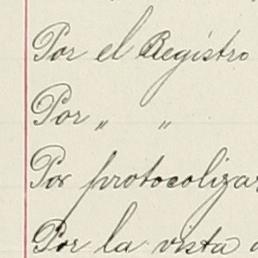 Por el Registro
Por " "
Por protocolizar
Por la vista d